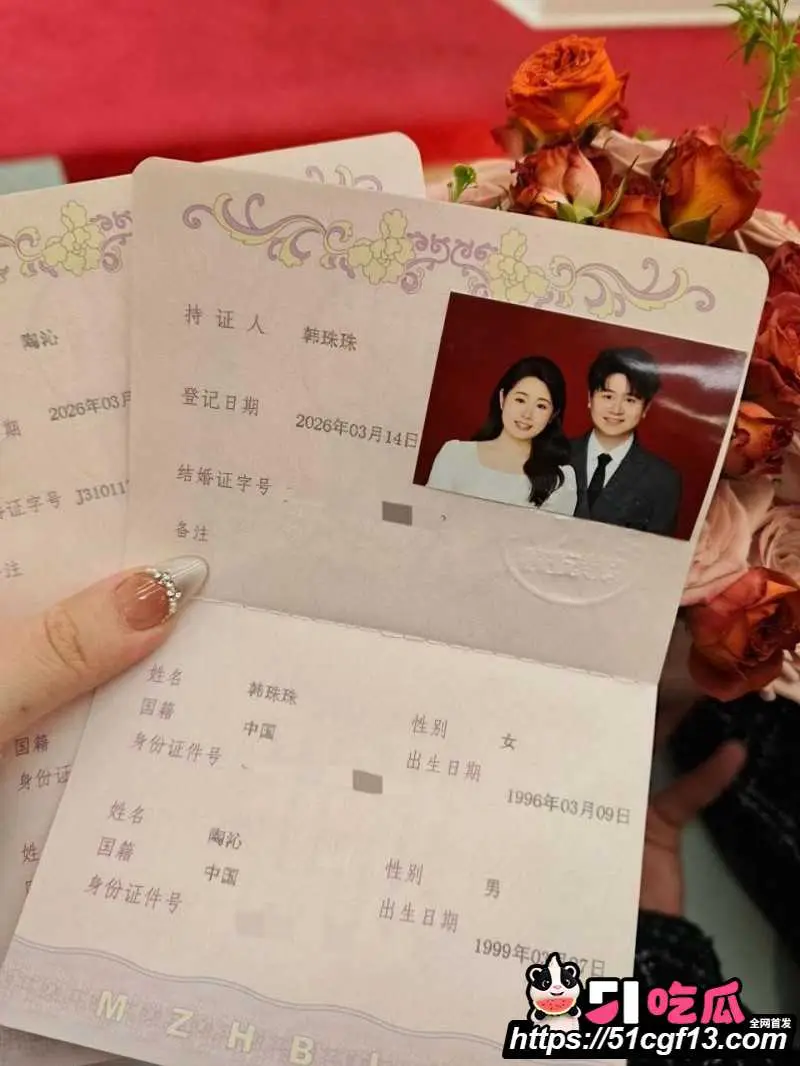 陶沁
2026年03月
期
证字号 J31011
注
国籍
身份证
姓
持证人 韩珠珠
登记日期 2026年03月14日
结婚证字号
备注
姓名 韩珠珠 性别 女
国籍 中国 出生日期 1996年03月09日
身份证件号
姓名 陶沁 性别 男
国籍 中国 出生日期 1999年03月07日
身份证件号
MZHB
51吃瓜 全网首发
https://51cgf13.com